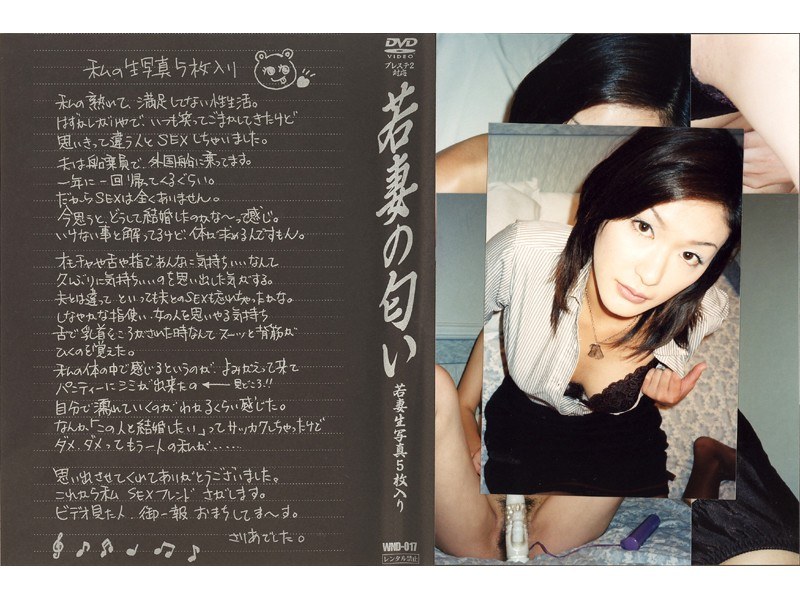 私の生写真5枚入り
私の熟れて、満足してない性生活。
はずかしがりやで、いつも笑ってごまかしてきたけど
思いきって違う人とSEXしちゃいました。
夫は船乗員で、外国船に乗ってます。
一年に一回帰ってくるぐらい。
だからSEXは全くありません。
今思うと、どうして結婚したのかな〜って感じ。
いけない事と解ってるけど、体が求めるんですもん。
オモチャや舌や指であんなに気持ちいいなんて
久しぶりに気持ちいいのを思い出した気がする。
夫とは違って といっても夫とのSEXも忘れちゃったかな。
しなやかな指使い、女の人を思いやる気持ち
舌で乳首をころがされた時なんてスーッと背筋が
ひくのを覚えた。
私の体の中で感じるというのが、よみがえって来て
パンティーにシミが出来たの ← 見どころ!!
自分で濡れていくのがわかるくらい感じた。
なんか「この人と結婚したい」ってサッカクしちゃったけど
ダメ、ダメってもう一人の私が、.....
思い出させてくれてありがとうございました。
これから私 SEXフレンド さがします。
ビデオ見た人、御一報 おまちしてま〜す。
さりあでした。
DVD
VIDEO
プレステ2
対応
若妻の匂い
若妻生写真5枚入り
WND-017
レンタル禁止